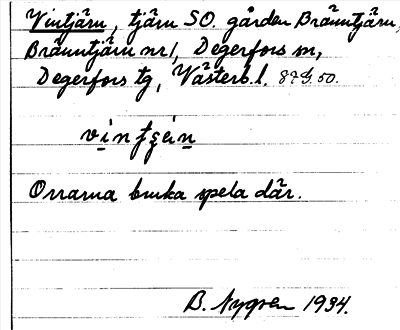 Vintjärn, tjärn SO. gården Bränntjärn,
Bränntjärn nr 1, Degerfors sn,
Degerfors tg, Västerb. l.
Orrarna bruka spela där.
B. Nygren 1934.